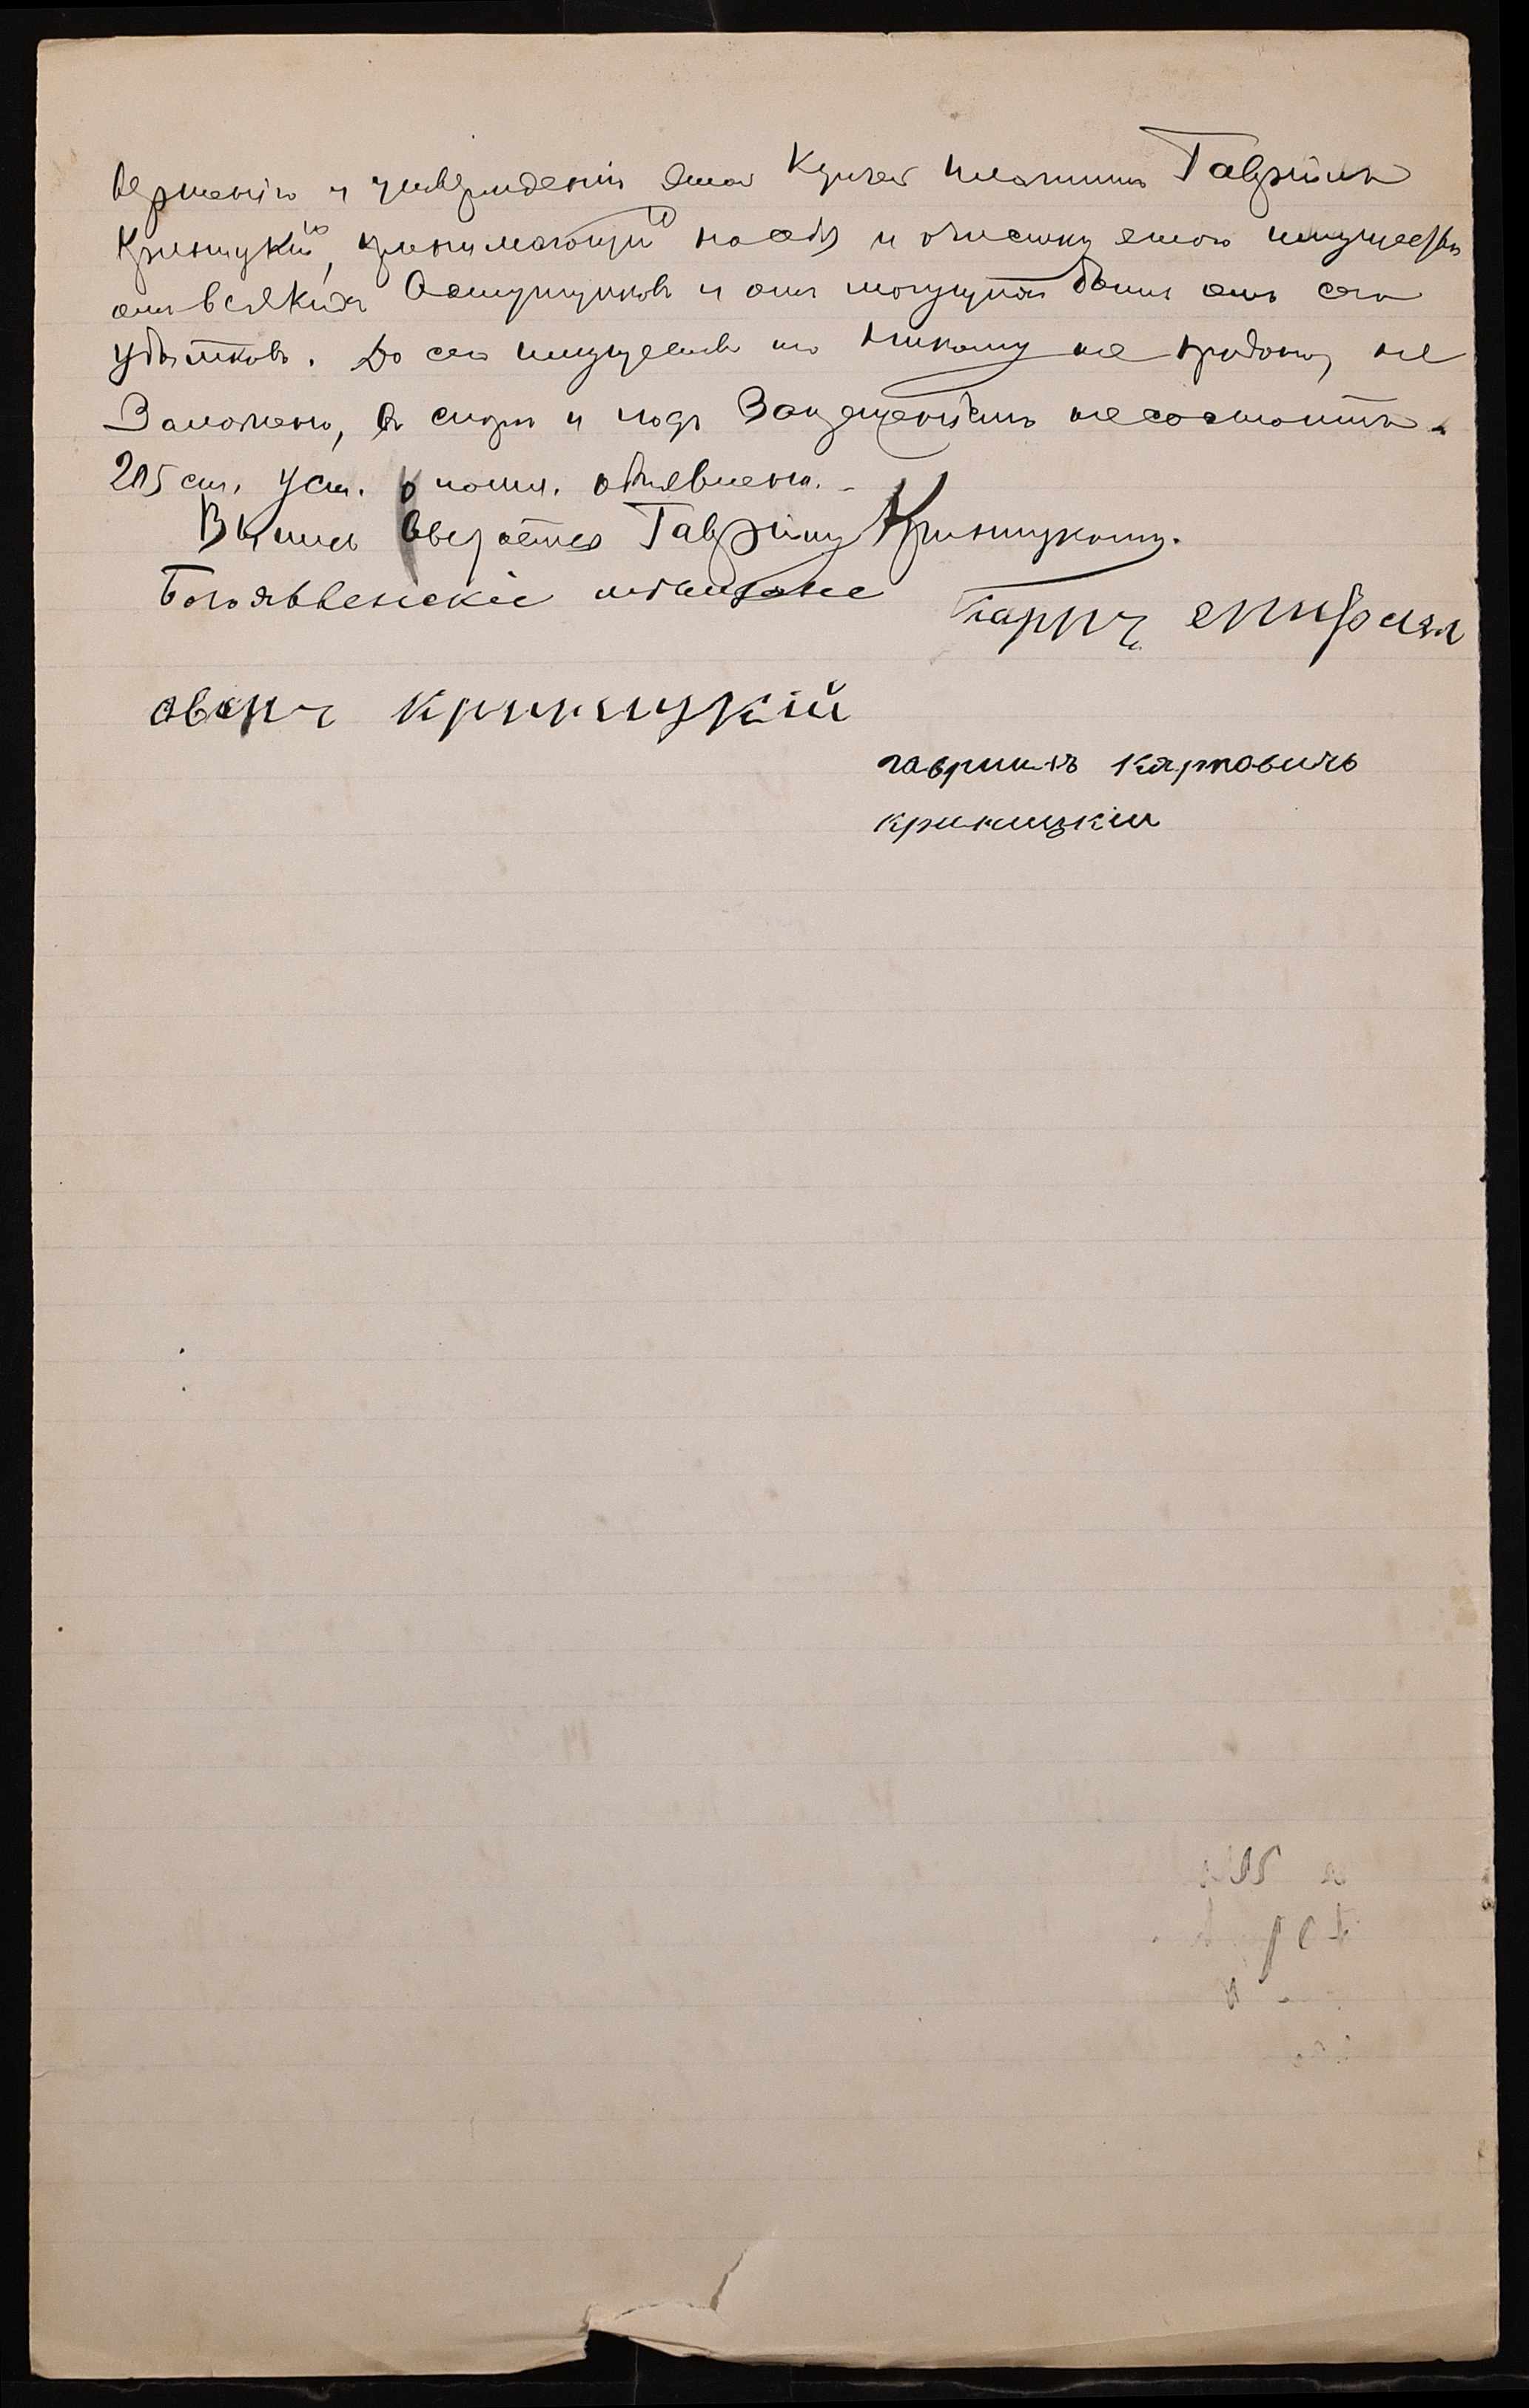 вершенію и утвержденію акта купчей платитъ Гавріилъ
Криницкій, принимающій на себя и очистку этого имущества
отъ всякихъ вступщиковъ и отъ могущихъ быть отъ сего
убытковъ. До сего имущество то никому не продано, не
Заложено, въ споръ и подъ Запрещеніемъ не состоитъ.
205 ст. Уст. о пошл. объявлена. -
Выпись выдается Гавріилу Криницкому.
Богоявленскіе мѣщане Карпъ епифан
овичъ криницкій
гавриилъ карповичъ
криницкій